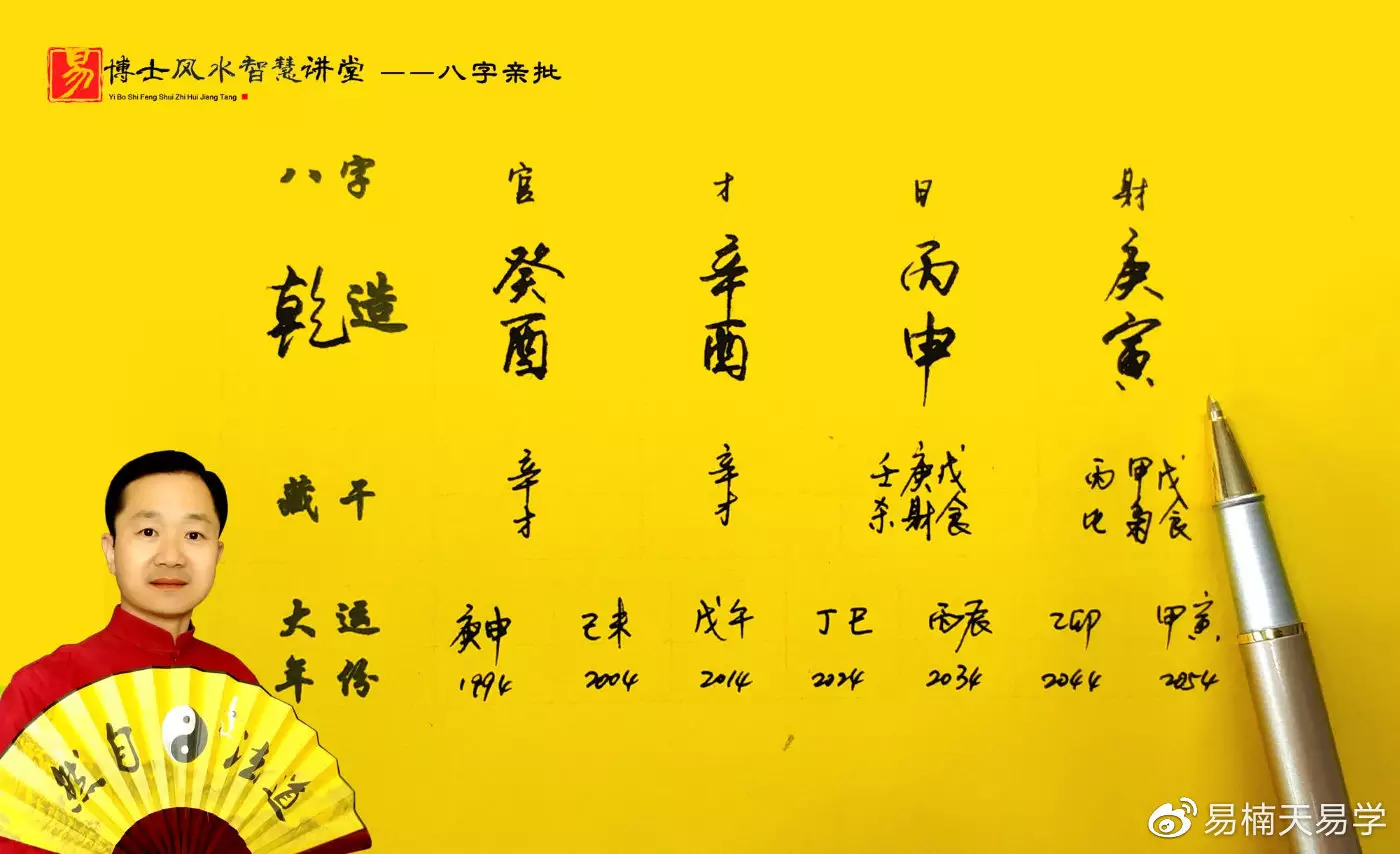 易 博士风水智慧讲堂 ——八字亲批
Yi Bo Shi Feng Shui Zhi Hui Jiang Tang
八字 官 才 日 財
乾造 癸 辛 丙 庚
酉 酉 申 寅
藏干 辛 辛 壬庚戊 丙甲戊
才 才 杀財食 比 食
大运 庚申 己未 戊午 丁巳 丙辰 乙卯 甲寅
年份 1994 2004 2014 2024 2034 2044 2054
然自法道
易楠天易学